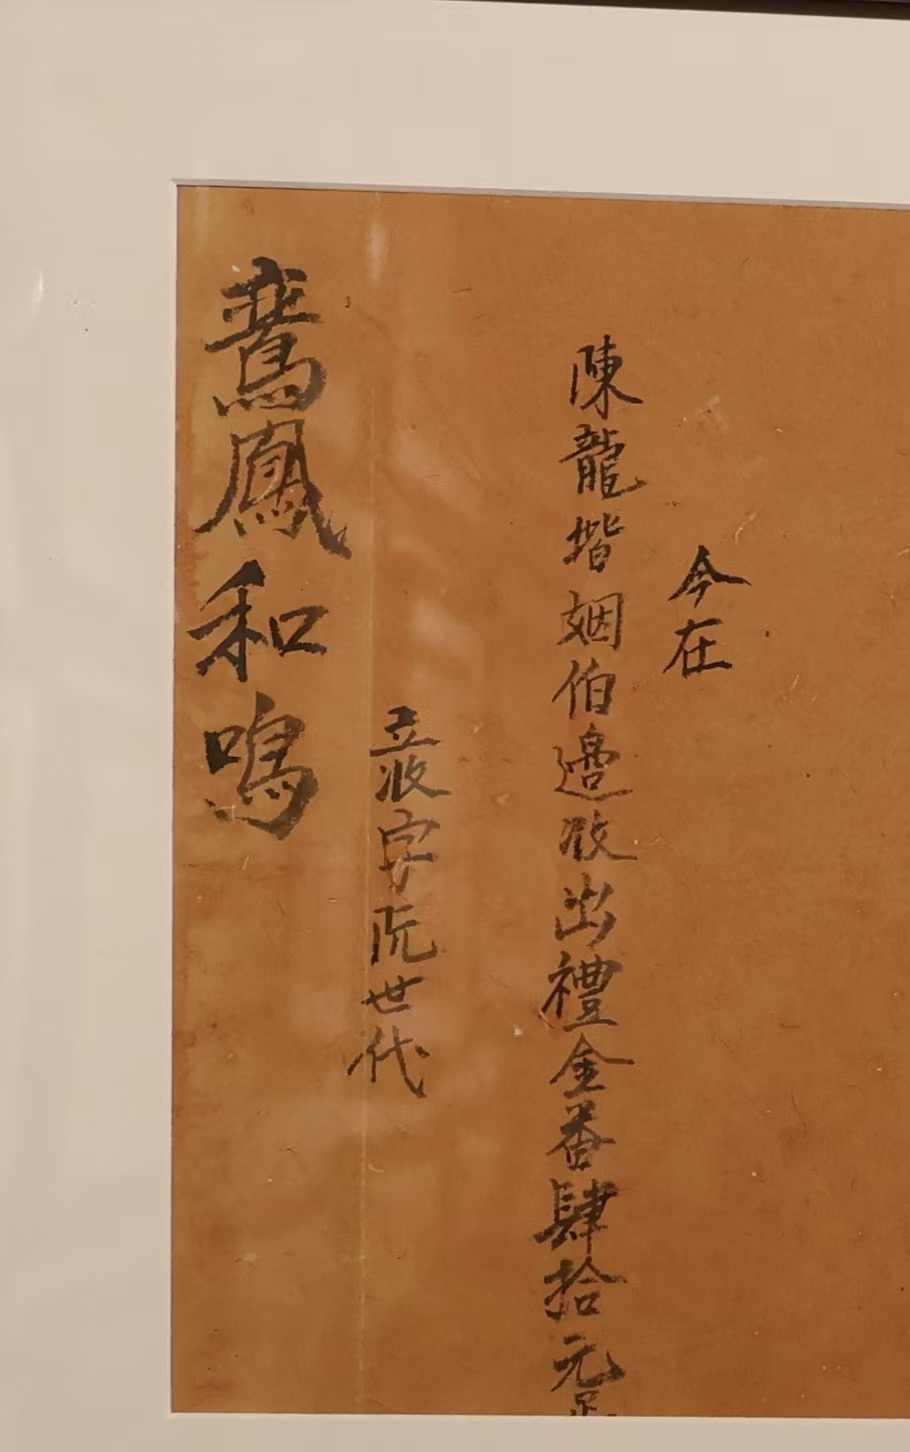 今在
陳龍揩姻伯邊收出禮金番肆拾元
立收字阮世代
鸞鳳和鳴